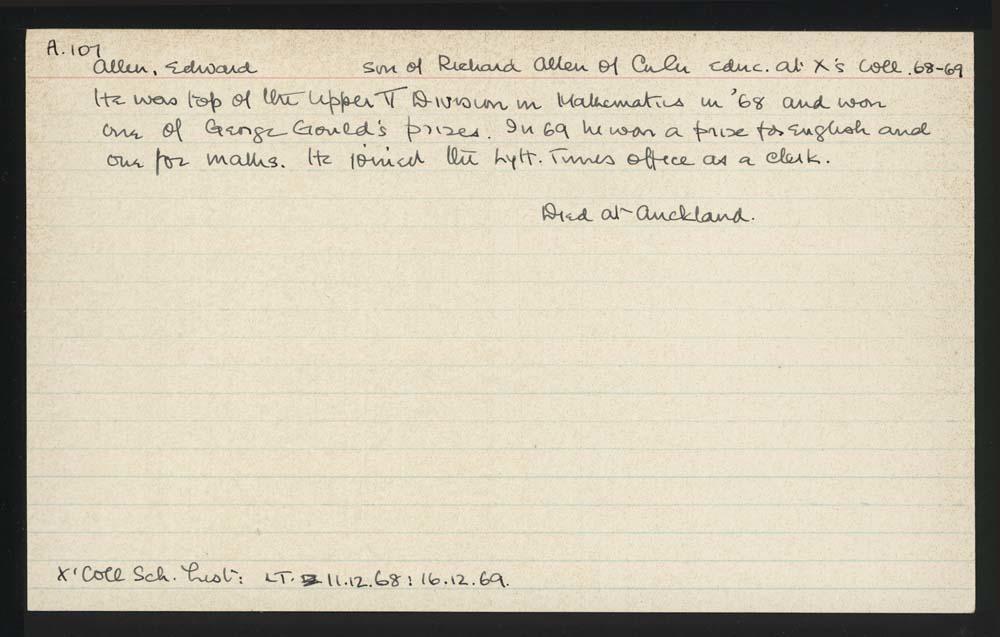 A.107
Allen, Edward son of Richard Allen of ChCh educ. at X's Coll. 68-69
He was top of the Upper V Division in Mathematics in '68 and won
one of George Gould's prizes. In 69 he won a prize for English and
one for maths. He joined the Lytt. Times office as a clerk.
Died at Auckland.
X' Coll Sch. List: LT. 11.12.68: 16.12.69.